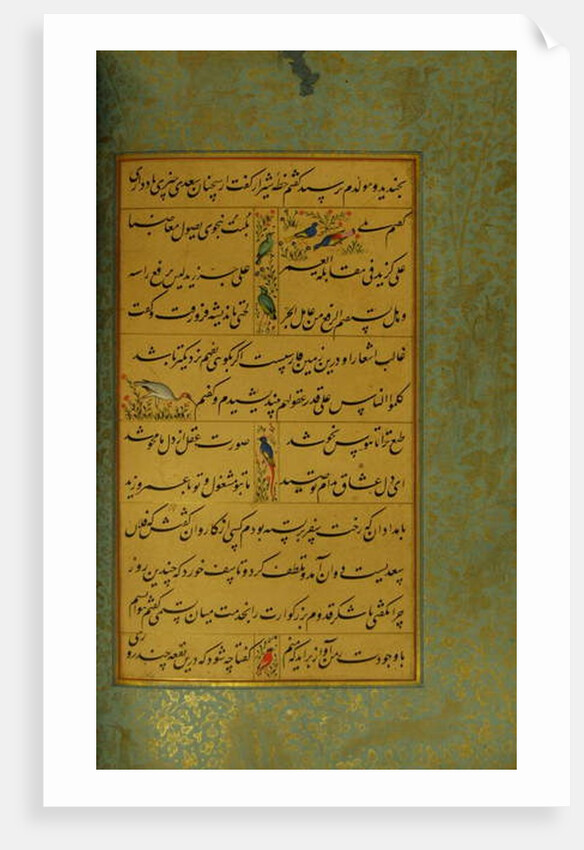 بخندید و مولدم پرسید گفتم خطه شیراز گفت از سخنان سعدی چیزی یاد داری
گفتم بلی بلیت بنحوی یصول مغاضبا
علی کزید فی مقابلة العمر علی جر ذیل لیس یرفع راسه
و هل یستقیم الرفع من عامل الجر لختی باندیشه فرو رفت و گفت
غالب اشعار او درین زمین فارسیست اگر بکوئی بفهم نزدیکتر باشد
کلموا الناس علی قدر عقولهم بیندیشیدم و گفتم
طبع ترا تا هوس نحو شد صورت عقل از دل ما محو شد
ای دل عشاق بدام تو صید ما بتو مشغول و تو با عمرو و زید
بامدادان که رخت سفر بربسته بودم کسی از کاروان گفتش که فلان
سعدیست دوان آمد و تلطف کرد و تاسف خورد که چندین روز
چرا نگفتی تا شکر قدوم بزرگوارت را بخدمت میان بستمی گفتم
با وجودت ز من آواز برآید که منم گفتا چه شود که درین بقعه چند روزی